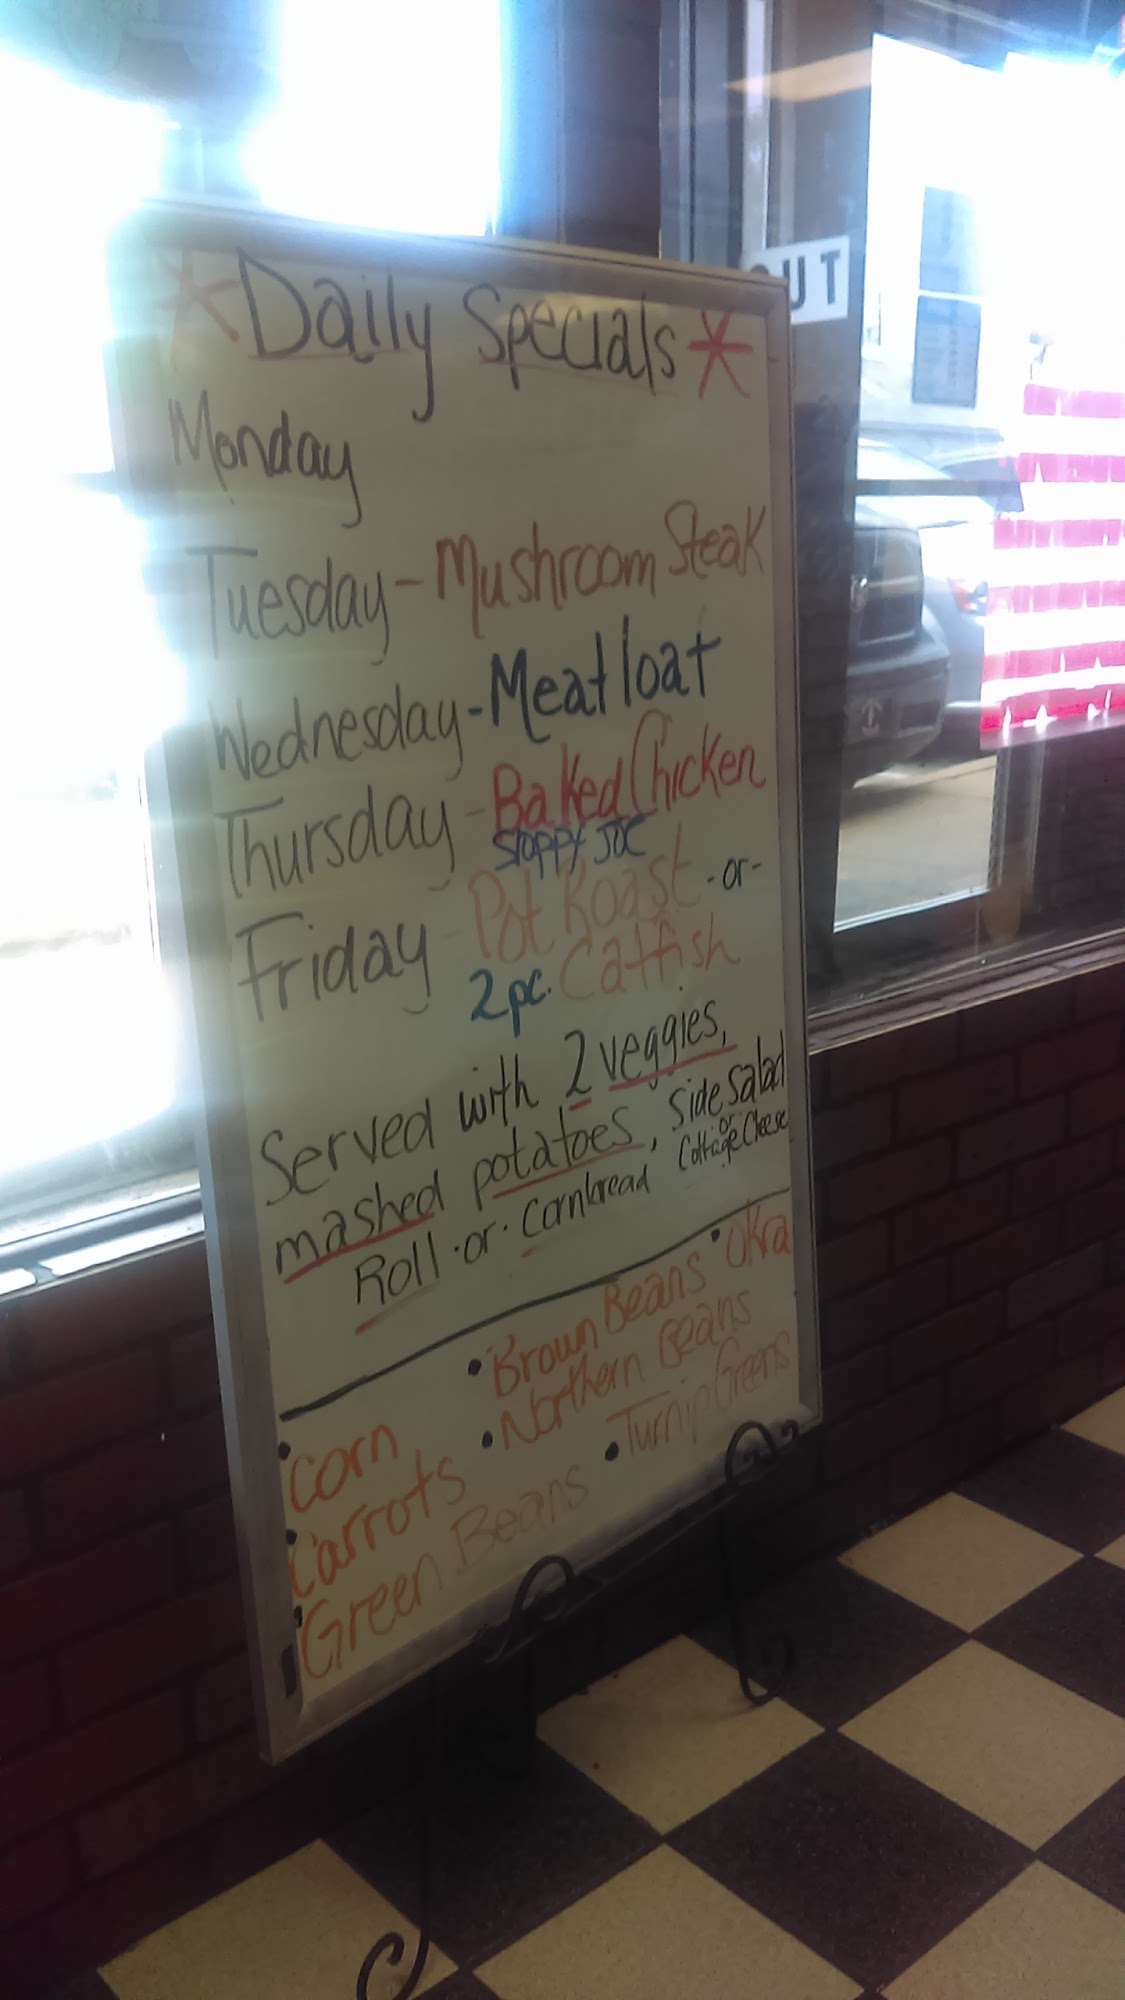 * Daily Specials *
Monday
Tuesday - Mushroom Steak
Wednesday - Meatloaf
Thursday - Baked Chicken
Sloppy Joe
Friday - Pot Roast - or -
2 pc. Catfish
Served with 2 veggies,
mashed potatoes, side salad
or
Roll · or · cornbread Cottage Cheese
• Brown Beans • Okra
• Corn • Northern Beans
• Carrots • Turnip Greens
• Green Beans
UT